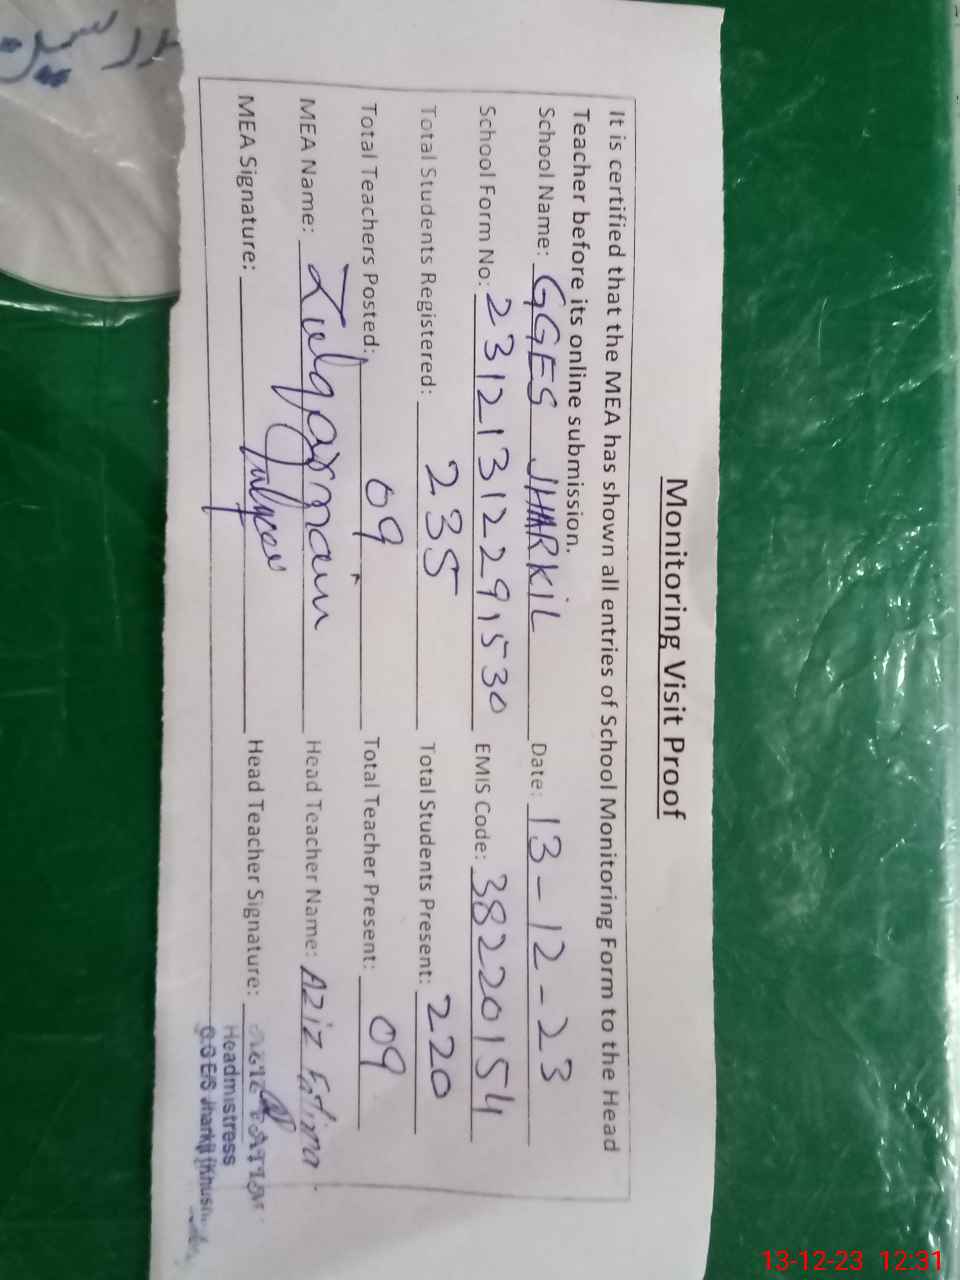 Monitoring Visit Proof
It is certified that the MEA has shown all entries of School Monitoring Form to the Head
Teacher before its online submission.
School Name: GGES JHARKIL Date: 13-12-23
School Form No: 23121312291530 EMIS Code: 38220154
Total Students Registered: 235 Total Students Present: 220
Total Teachers Posted: 09 Total Teacher Present: 09
MEA Name: Zulqarnain Head Teacher Name: AZiZ Fatima
MEA Signature: Head Teacher Signature:
Headmistress
G.G E/S Jharkil
13-12-23 12:31